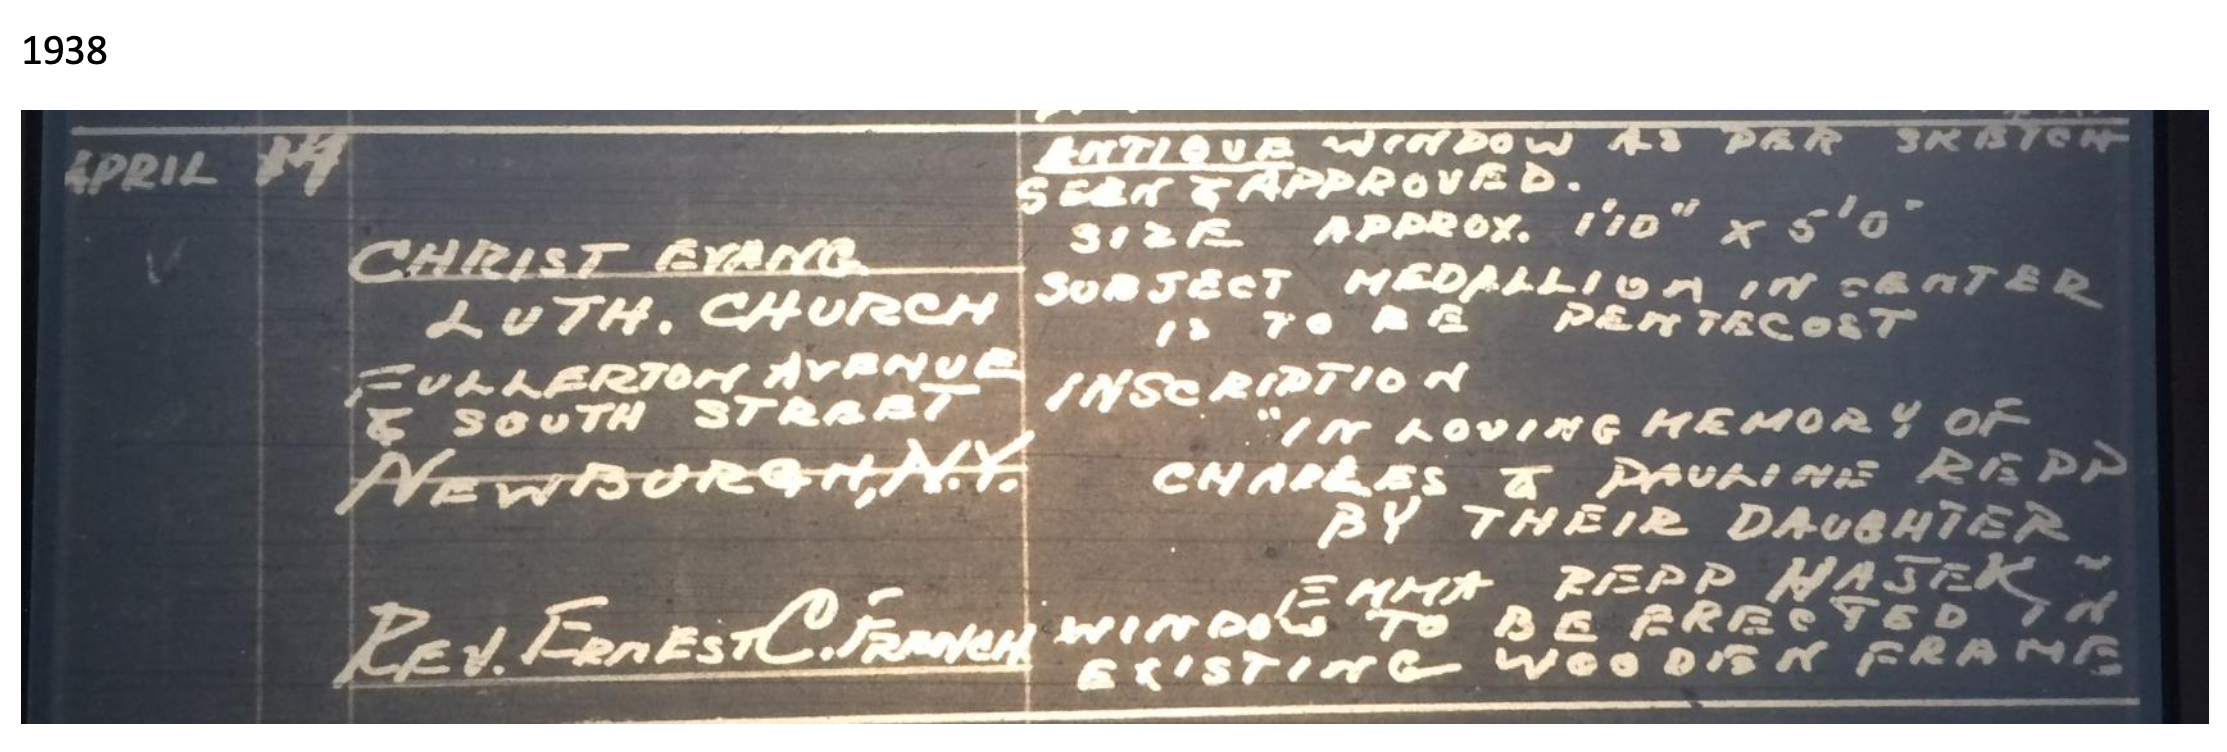 1938
APRIL
ANTIQUE WINDOW AS PER SKETCH
SEEN & APPROVED.
SIZE APPROX. 1'10" X 5'0"
CHRIST EVANG
LUTH. CHURCH
FULLERTON AVENUE
& SOUTH STREET
NEWBURGH, N.Y.
REV. ERNEST C. FRENCH
SUBJECT MEDALLION IN CENTER
IS TO BE PENTECOST
INSCRIPTION
"IN LOVING MEMORY OF
CHARLES & PAULINE REPP
BY THEIR DAUGHTER
EMMA REPP HASEK ~
WINDOW TO BE ERECTED IN
EXISTING WOODEN FRAME